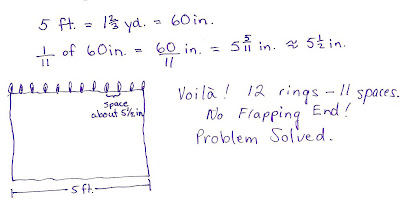 5 ft. = 1 2/3 yd. = 60 in.
1/11 of 60 in. = 60/11 in. = 5 5/11 in. ≈ 5 1/2 in.
Voilà! 12 rings – 11 spaces.
No Flapping End!
Problem Solved.
space
about 5 1/2 in
5 ft.